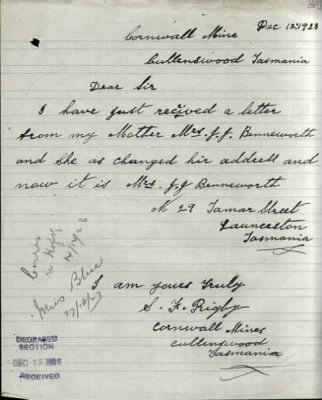 Cornwall Mine Dec 12. 1928
Cullenswood Tasmania
Dear Sir
I have just recived a letter
from my Mother Mrs. J. J. Benneworth
and she as changed hir address and
now it is Mrs. J. J. Benneworth
N 29 Tamar Street
Launceston
Tasmania
I am yours truly
S. F. Rigby
Cornwall Mines
Cullenswood
Tasmania
Blue
DECEASED
SECTION
DEC 17 1928
RECEIVED